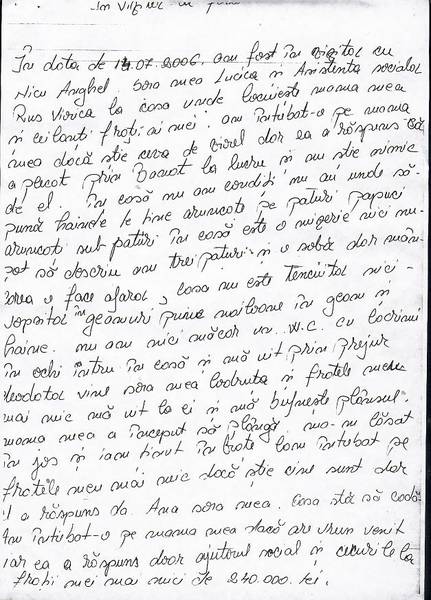 În data de 14.07.2006. am fost în vizită cu
Nicu Anghel. sora mea Lucica și Asistenta socială
Rus Viorica la casa unde locuiește mama mea
și ceilanți frați ai mei. am întubat-o pe mama
mea dacă știe ceva de Viorel dar ea a răspuns că
a plecat prin Banat la lucru și nu știe nimic
de el. în casă nu am condiți nu au unde să-
pună hainele le ține aruncate pe paturi papuci
aruncati sub paturi în casă este o mizerie nici nu-
pot să descriu am trei paturi și o sobă dar mân-
carea o face afară, casa nu este tencuită nici-
vopsită în geamuri pune nailoane în geam și
haine. nu am nici măcar un W.C. cu lacrimi
în ochi întru în casă și mă uit prin prejur
deodată vine sora mea și fratele meu
mai mic mă uit la ei și mă bufnește plânsul.
mama mea a început să plângă m-am lăsat
în jos și iam ținut în brate lam întubat pe
fratele meu mai mic dacă știe cine sunt dar
el a răspuns da Ana sora mea. Casa stă să cadă
am întubat-o pe mama mea dacă are vreun venit
iar ea a răspuns doar ajutorul social și cecurile la
frații mei mai mici de 240.000. lei.